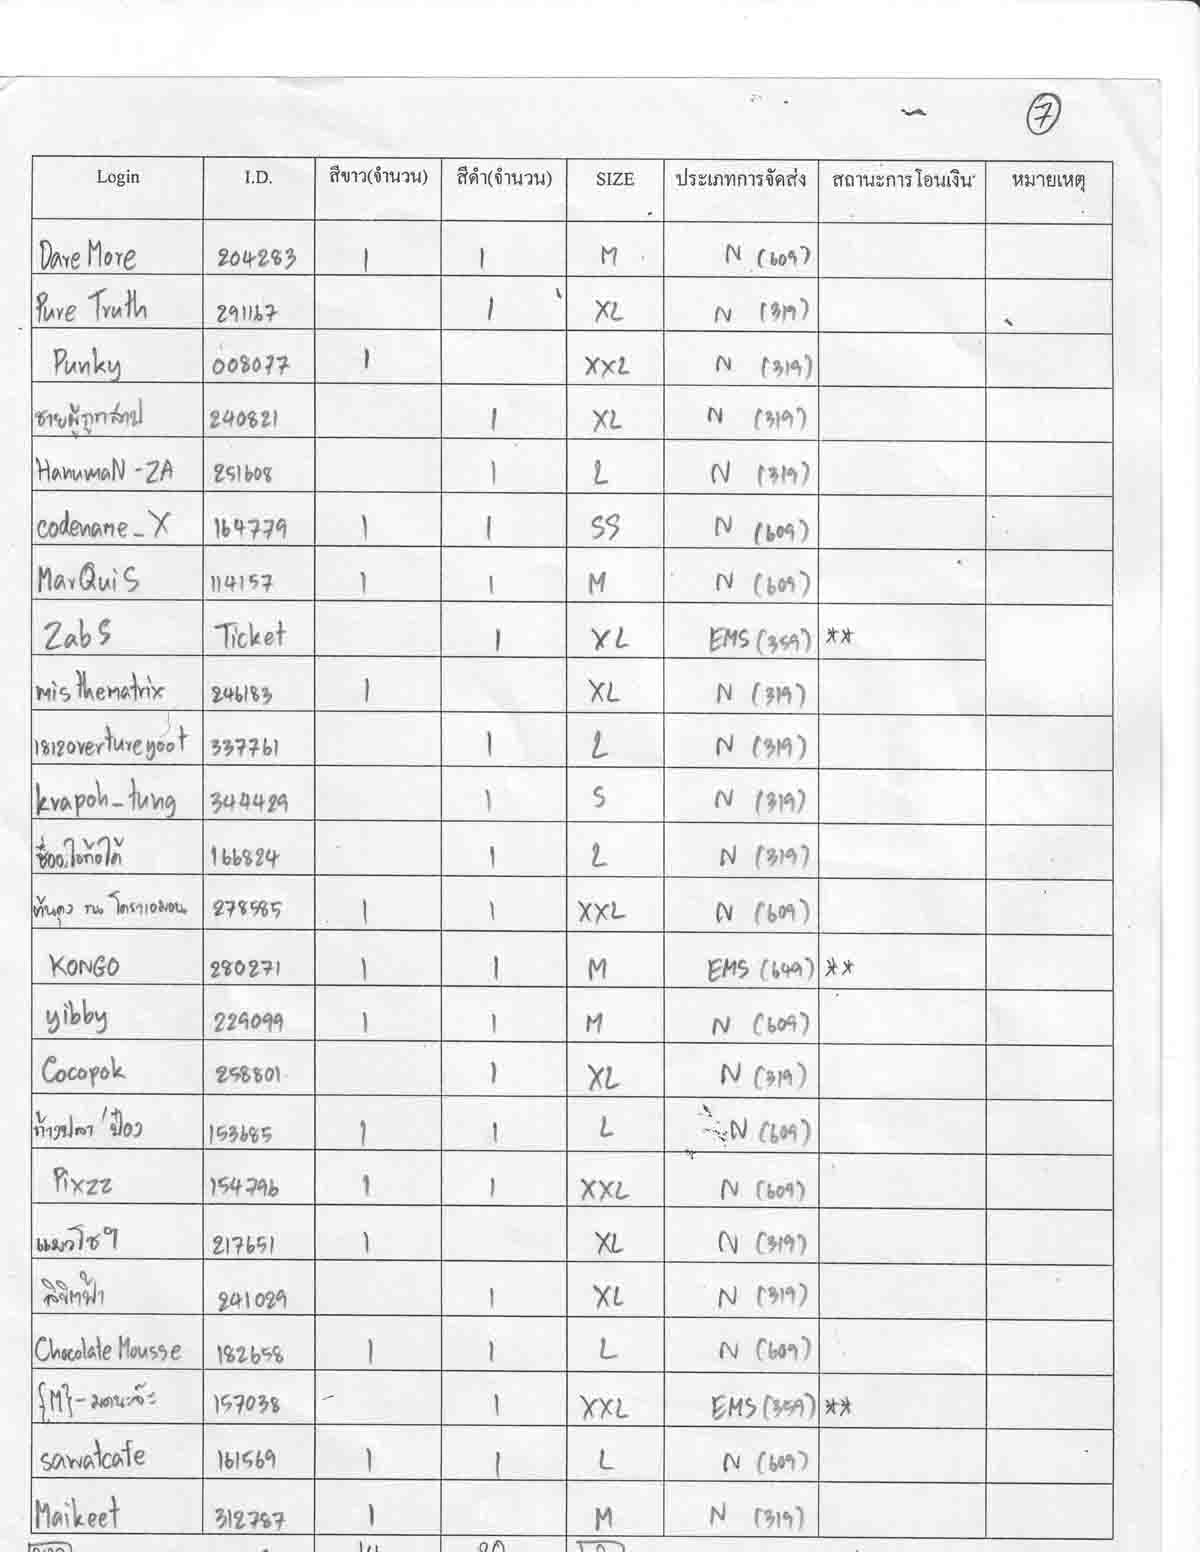 7
Login I.D. สีขาว(จำนวน) สีดำ(จำนวน) SIZE ประเภทการจัดส่ง สถานะการโอนเงิน หมายเหตุ
Dare More 204283 1 1 M N (609)
Pure Truth 291167 1 XL N (319)
Punky 008077 1 XXL N (319)
ชายผู้ถูกสาป 240821 1 XL N (319)
HanumaN-ZA 251608 1 L N (319)
codename_X 164779 1 1 SS N (609)
MarQuiS 114157 1 1 M N (609)
ZabS Ticket 1 XL EMS (359) **
misthematrix 246183 1 XL N (319)
1812overtureyoot 337761 1 L N (319)
krapoh_tung 344429 1 S N (319)
166824 1 L N (319)
278585 1 1 XXL N (609)
KONGO 280271 1 1 M EMS (649) **
yibby 229099 1 1 M N (609)
Cocopok 258801 1 XL N (319)
153685 1 1 L N (609)
Pixzz 154796 1 1 XXL N (609)
217651 1 XL N (319)
ลิขิตฟ้า 241029 1 XL N (319)
Chocolate Mousse 182658 1 1 L N (609)
{M}-มดนะจ๊ะ 157038 - 1 XXL EMS (359) **
sawatcafe 161569 1 1 L N (609)
Maikeet 312787 1 M N (319)